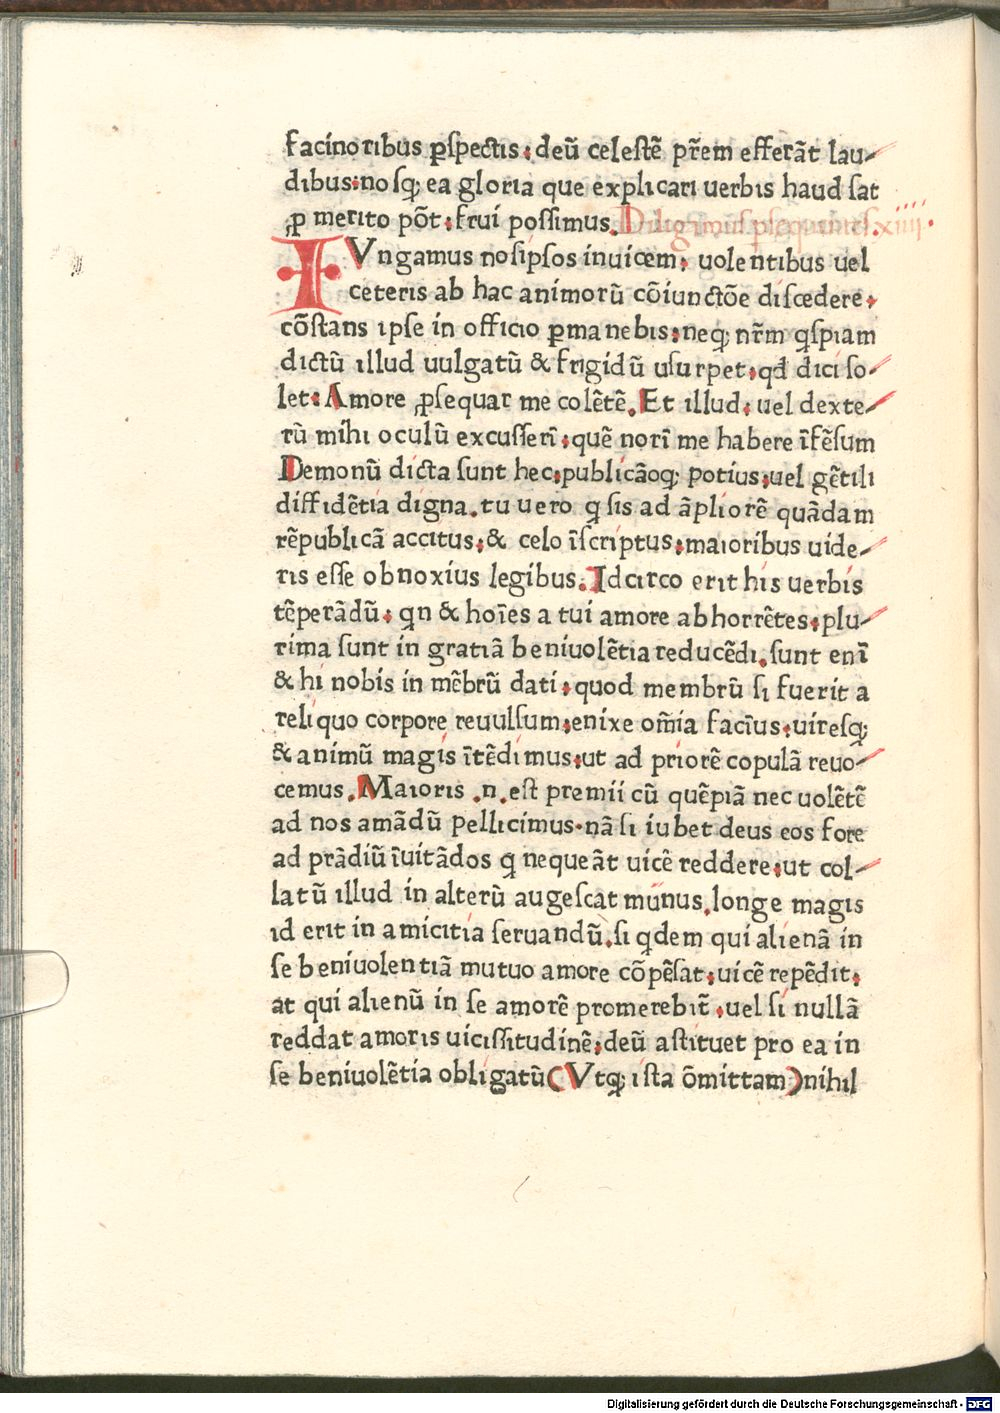 facinoribus ꝑspectis: deū celestē pr̄em efferāt lau-
dibus: nosq; ea gloria que explicari uerbis haud sat
ꝓ merito pōt: frui possimus. Diligamus psequentes. xiiii.
IVngamus nosipsos inuicem: uolentibus uel
ceteris ab hac animorū cōiunctōe discedere:
cōstans ipse in officio ꝑmanebis: neq; nr̄m qspiam
dictū illud uulgatū & frigidū usurpet: qd dici so-
let: Amore ꝓsequar me colētē. Et illud: uel dexte-
rū mihi oculū excusserī: quē norī me habere īfēsum
Demonū dicta sunt hec: publicāoq; potius: uel gētili
diffidētia digna. tu uero q sis ad āpliorē quādam
rēpublicā accitus: & celo īscriptus: maioribus uide-
ris esse obnoxius legibus. Idcirco erit his uerbis
tēperādū: qn & hoīes a tui amore abhorrētes: plu-
rima sunt in gratiā beniuolētia reducēdi. sunt enī
& hi nobis in mēbrū dati: quod membrū si fuerit a
reliquo corpore reuulsum: enixe om̄ia facīus: uiresq;
& animū magis ītēdimus: ut ad priorē copulā reuo-
cemus. Maioris .n. est premii cū quēpiā nec uolētē
ad nos amādū pellicimus. nā si iubet deus eos fore
ad prādiū īuitādos q nequeāt uicē reddere: ut col-
latū illud in alterū augescat munus. longe magis
id erit in amicitia seruandū. si qdem qui alienā in
se beniuolentiā mutuo amore cōpēsat: uicē repēdit:
at qui alienū in se amorē promerebit̄: uel si nullā
reddat amoris uicissitudinē: deū astituet pro ea in
se beniuolētia obligatū (Vtq; ista ōmittam) nihil
Digitalisierung gefördert durch die Deutsche Forschungsgemeinschaft - DFG